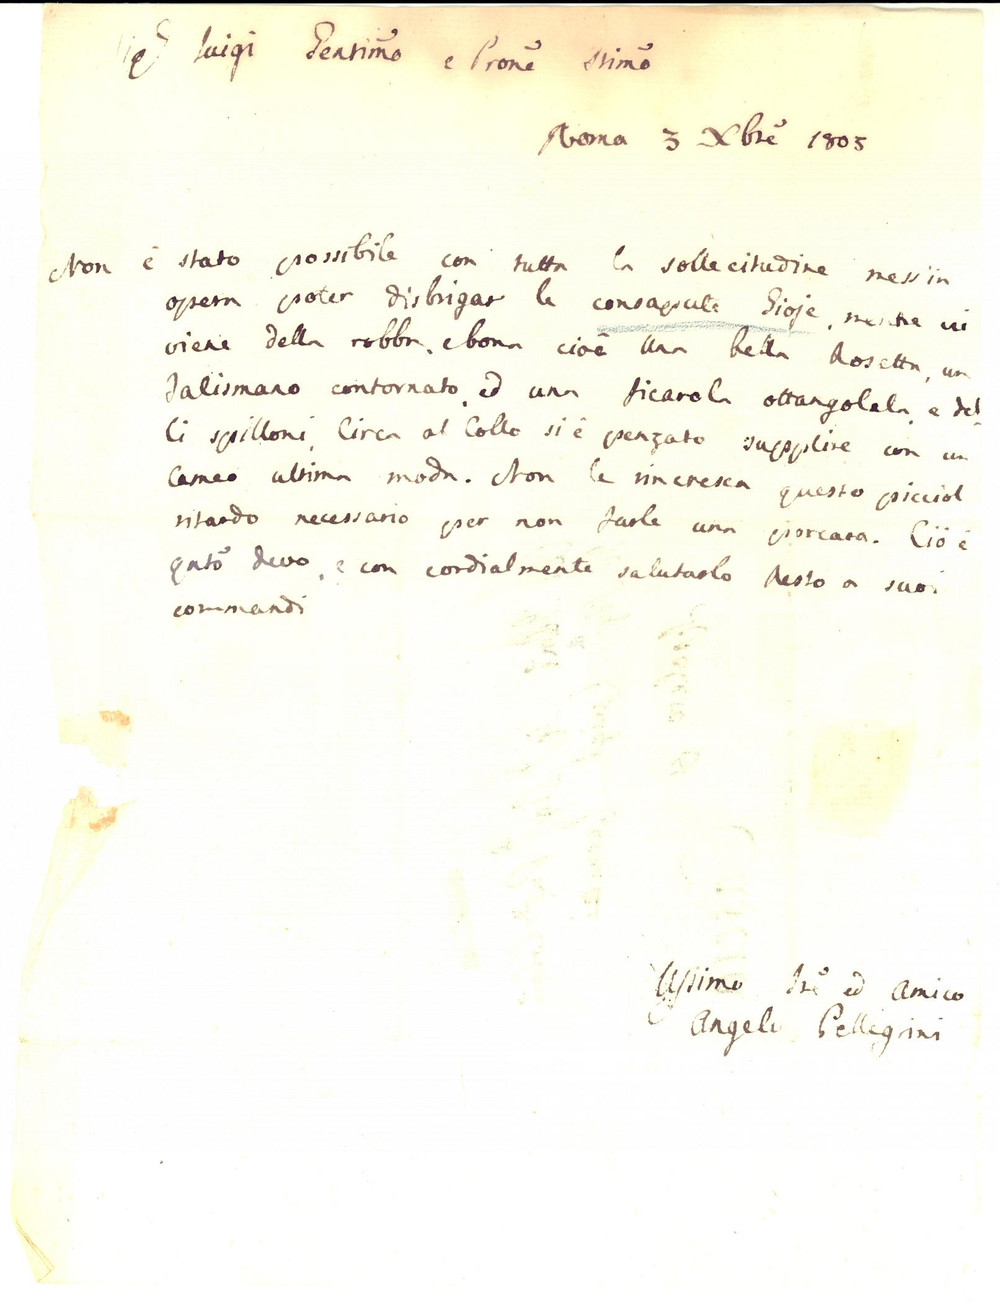 Sig.r Luigi Gentimo e Prone Stimo
Roma 3 Xbre 1805
Non è stato possibile con tutta la sollecitudine mess'in
opera poter disbrigar le consapute Gioje, mentre vi
viene della robba, e bona cioè Una bella Rosetta, un
Talismano contornato, ed una ficarola ottangolala, e del
li spilloni, Circa al Collo si è penzato supplire con un
Cameo ultima moda. Non le rincresca questo picciol
ritardo necessario per non farle una porcara. Ciò è
qnto devo, e con cordialmente salutarlo Resto a suoi
commandi
Ussimo Sre ed Amico
Angelo Pellegrini